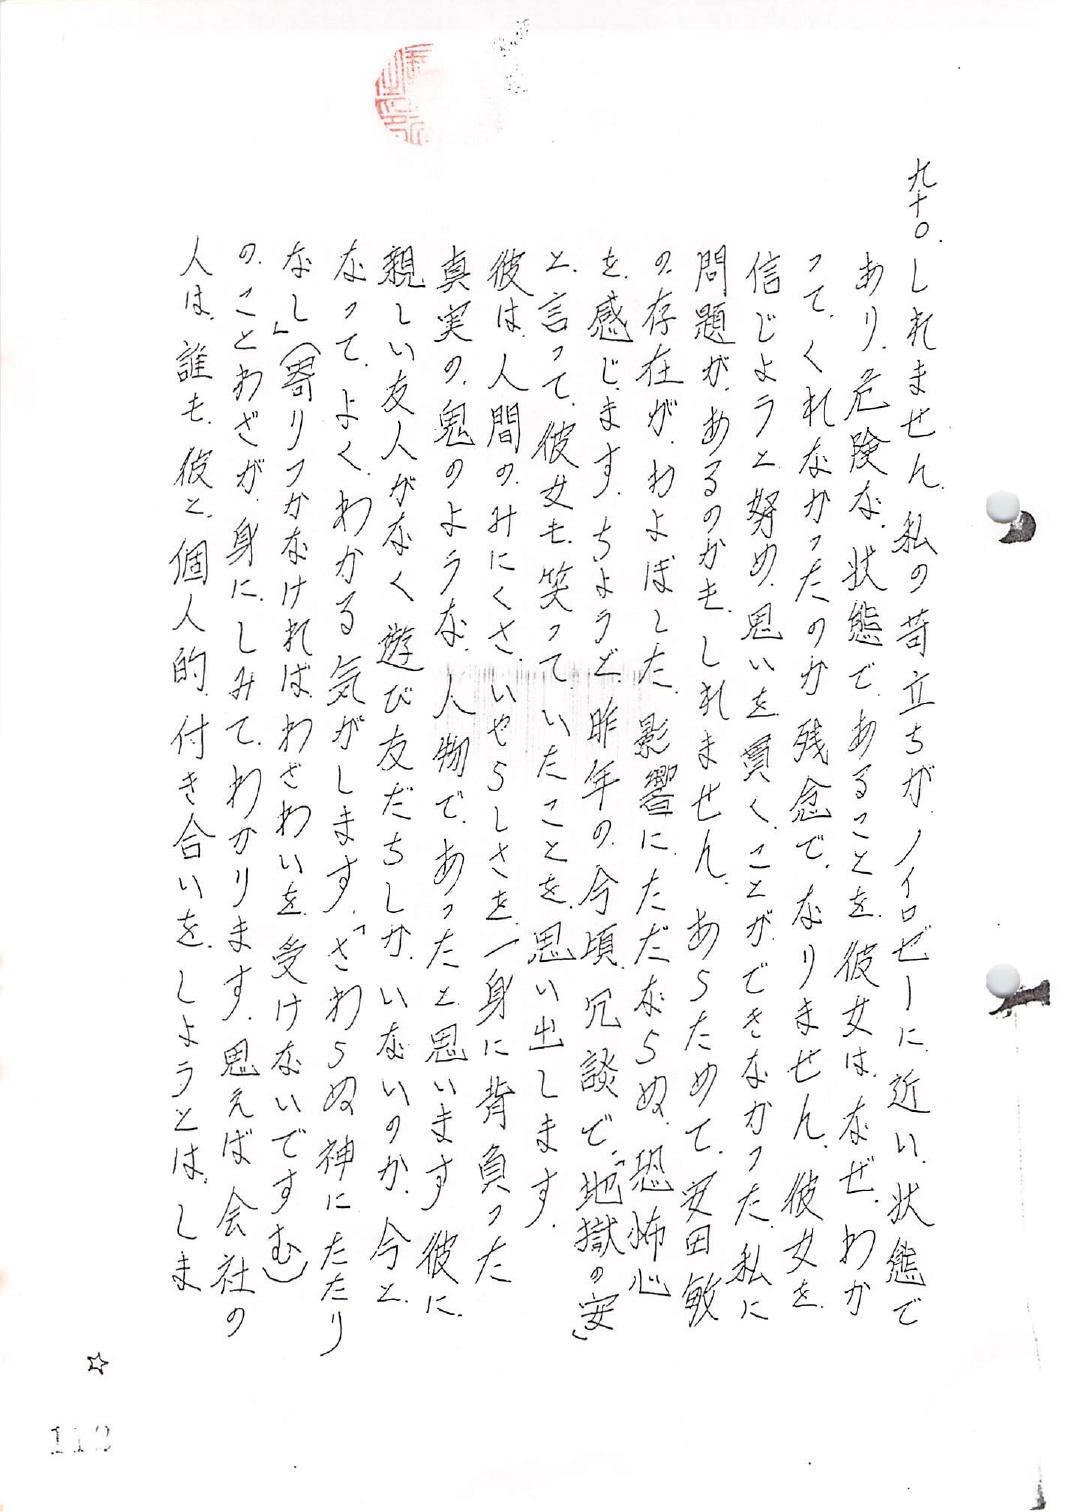 九十。しれません。私の苛立ちが、ノイロゼーに、近い、状態で
あり、危険な、状態で、あることを、彼女は、なぜ、わか
って、くれなかったのか、残念で、なりません。彼女を、
信じようと、努め、思いを貫く、ことが、できなかった、私に
問題が、あるのかも、しれません。あらためて、安田敏
の、存在が、わよぼした、影響に、ただならぬ、恐怖心
を、感じます。ちょうど、昨年の、今頃、冗談で、「地獄の安」
と、言って、彼女も、笑って、いたことを、思い出します。
彼は、人間のみにくさ、いやらしさを、一身に背負った
真実の、鬼のような、人物で、あったと思います 彼に、
親しい友人がなく遊び友だちしか、いないのか、今と、
なって、よく、わかる気がします。「さわらぬ神にたたり
なし」(寄りつかなければ、わざわいを、受けないですむ)
の、ことわざが、身に、しみて、わかります。思えば会社の
人は、誰も、彼と、個人的、付き合いを、しようとは、しま
☆
112